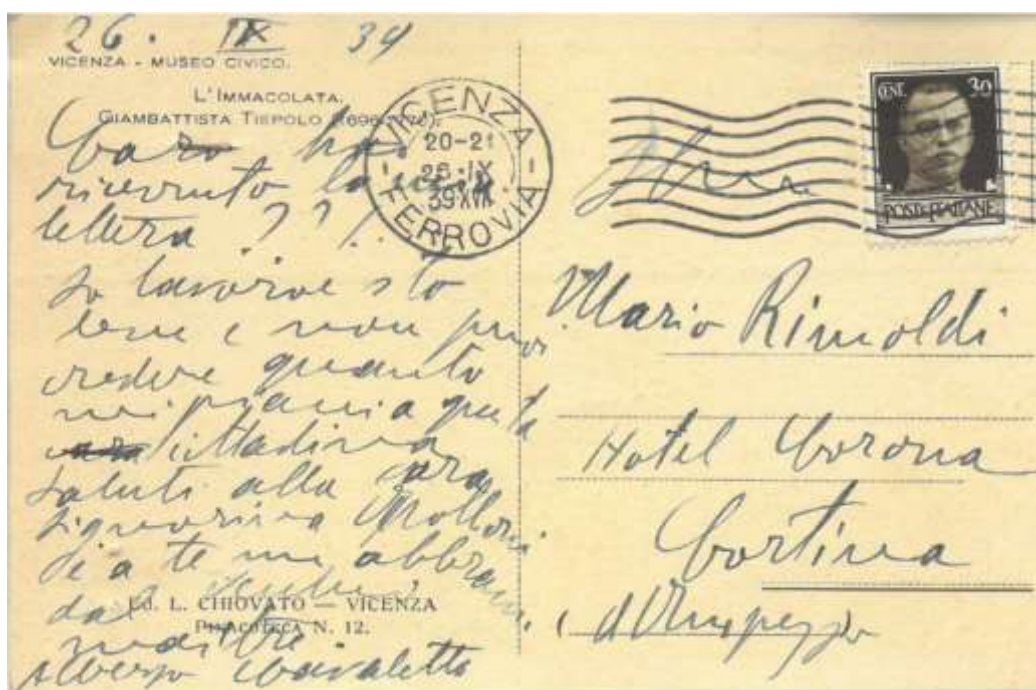 26. IX 39
VICENZA - MUSEO CIVICO.
L'IMMACOLATA.
GIAMBATTISTA TIEPOLO
Caro hai
ricevuto la
lettera ? ? !
Io lavoro e sto
bene e non puoi
credere quanto
mi piaccia questa
cittadina
Saluti alla cara
signorina Apollonia
e a te un abbraccio
dal
Ed. L. CHIOVATO — VICENZA
PINACOTECA N. 12.
Albergo Cavaletto
VICENZA
20-21
26·IX
39 XVII
FERROVIA
CENT. 30
POSTE ITALIANE
Mario Rimoldi
Hotel Corona
Cortina
d'Ampezzo